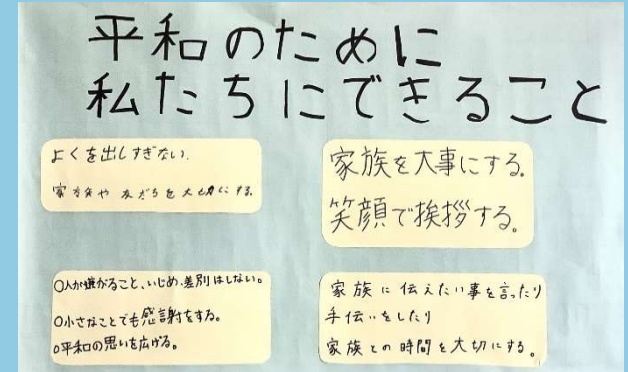 平和のために
私たちにできること
よくを出しすぎない.
家族や友だちを大切にする.
家族を大事にする。
笑顔で挨拶する。
○人が嫌がること、いじめ、差別はしない。
○小さなことでも感謝をする。
○平和の思いを広げる。
家族に伝えたい事を言ったり
手伝いをしたり
家族との時間を大切にする。